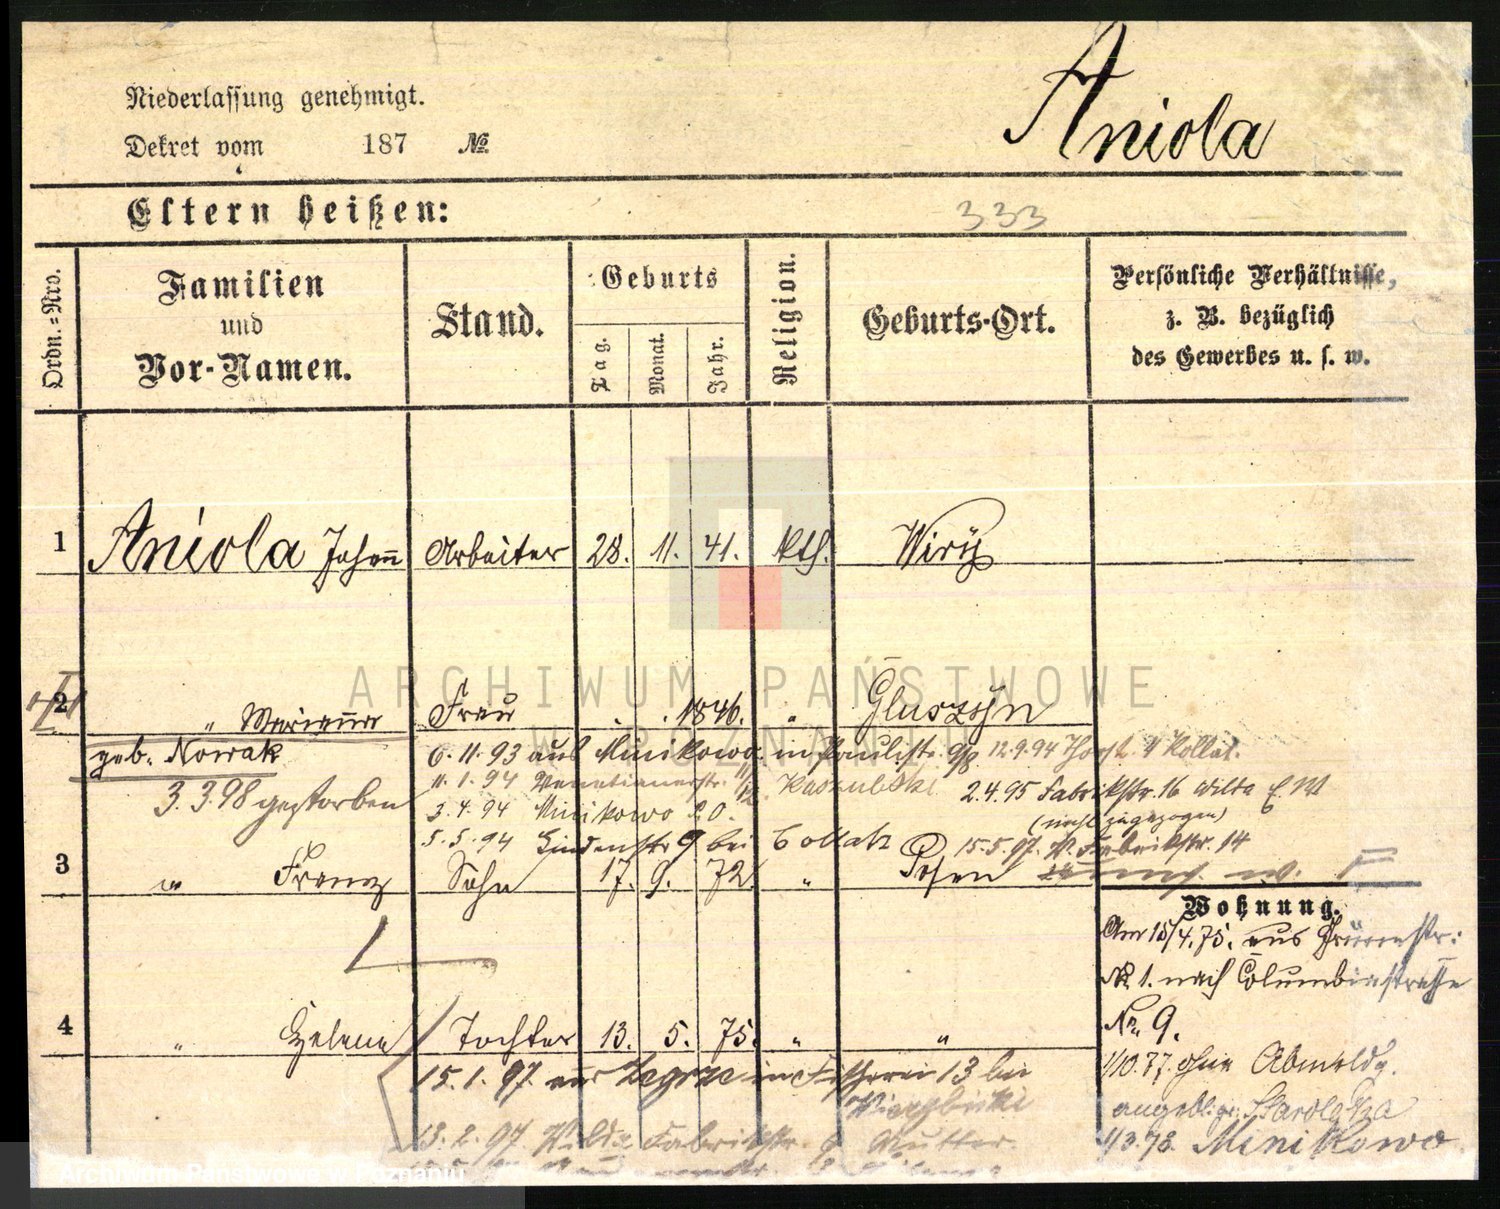 Niederlassung genehmigt.
Dekret vom 187 №
Aniola
Eltern heißen:
333
Ordn.=Nro.
Familien
und
Vor-Namen.
Stand.
Geburts
Tag.
Monat.
Jahr.
Religion.
Geburts-Ort.
Persönliche Verhältnisse,
z. B. bezüglich
des Gewerbes u. s. w.
1 Aniola Johann Arbeiter 28. 11. 41. kth. Wiry
ARCHIWUM PAŃSTWOWE
W POZNANIU
2 " Marianna Frau . . 1846. " Gluszyn
geb. Nowak
6.11.93 aus Minikowo in Paulistr. 9/8 12.9.94
11.1.94 Venetianerstr. Kaszubski 2.4.95 Fabrikstr. 16 Wilda
3.3.98 gestorben
3.4.94 Minikowo 20.
(nicht zugezogen)
5.5.94 Lindenstr 9 bei Collatz 15.5.97. W. Fabrikstr. 14
3 " Franz Sohn 17. 9. 72. " Posen
Wohnung.
Am 15/4.75. aus
№ 1. nach Columbiastrasse
No 9.
4 " Helene Tochter 13. 5. 75. " "
15.1.97. aus Zegrze in Fischerei 13 bei
1/10.77. ohne Abmeldg.
angebl. Starolenka
13.2.97. Wilda Fabrikstr. 9 Mutter.
1/3.78. Minikowo
Archiwum Państwowe w Poznaniu